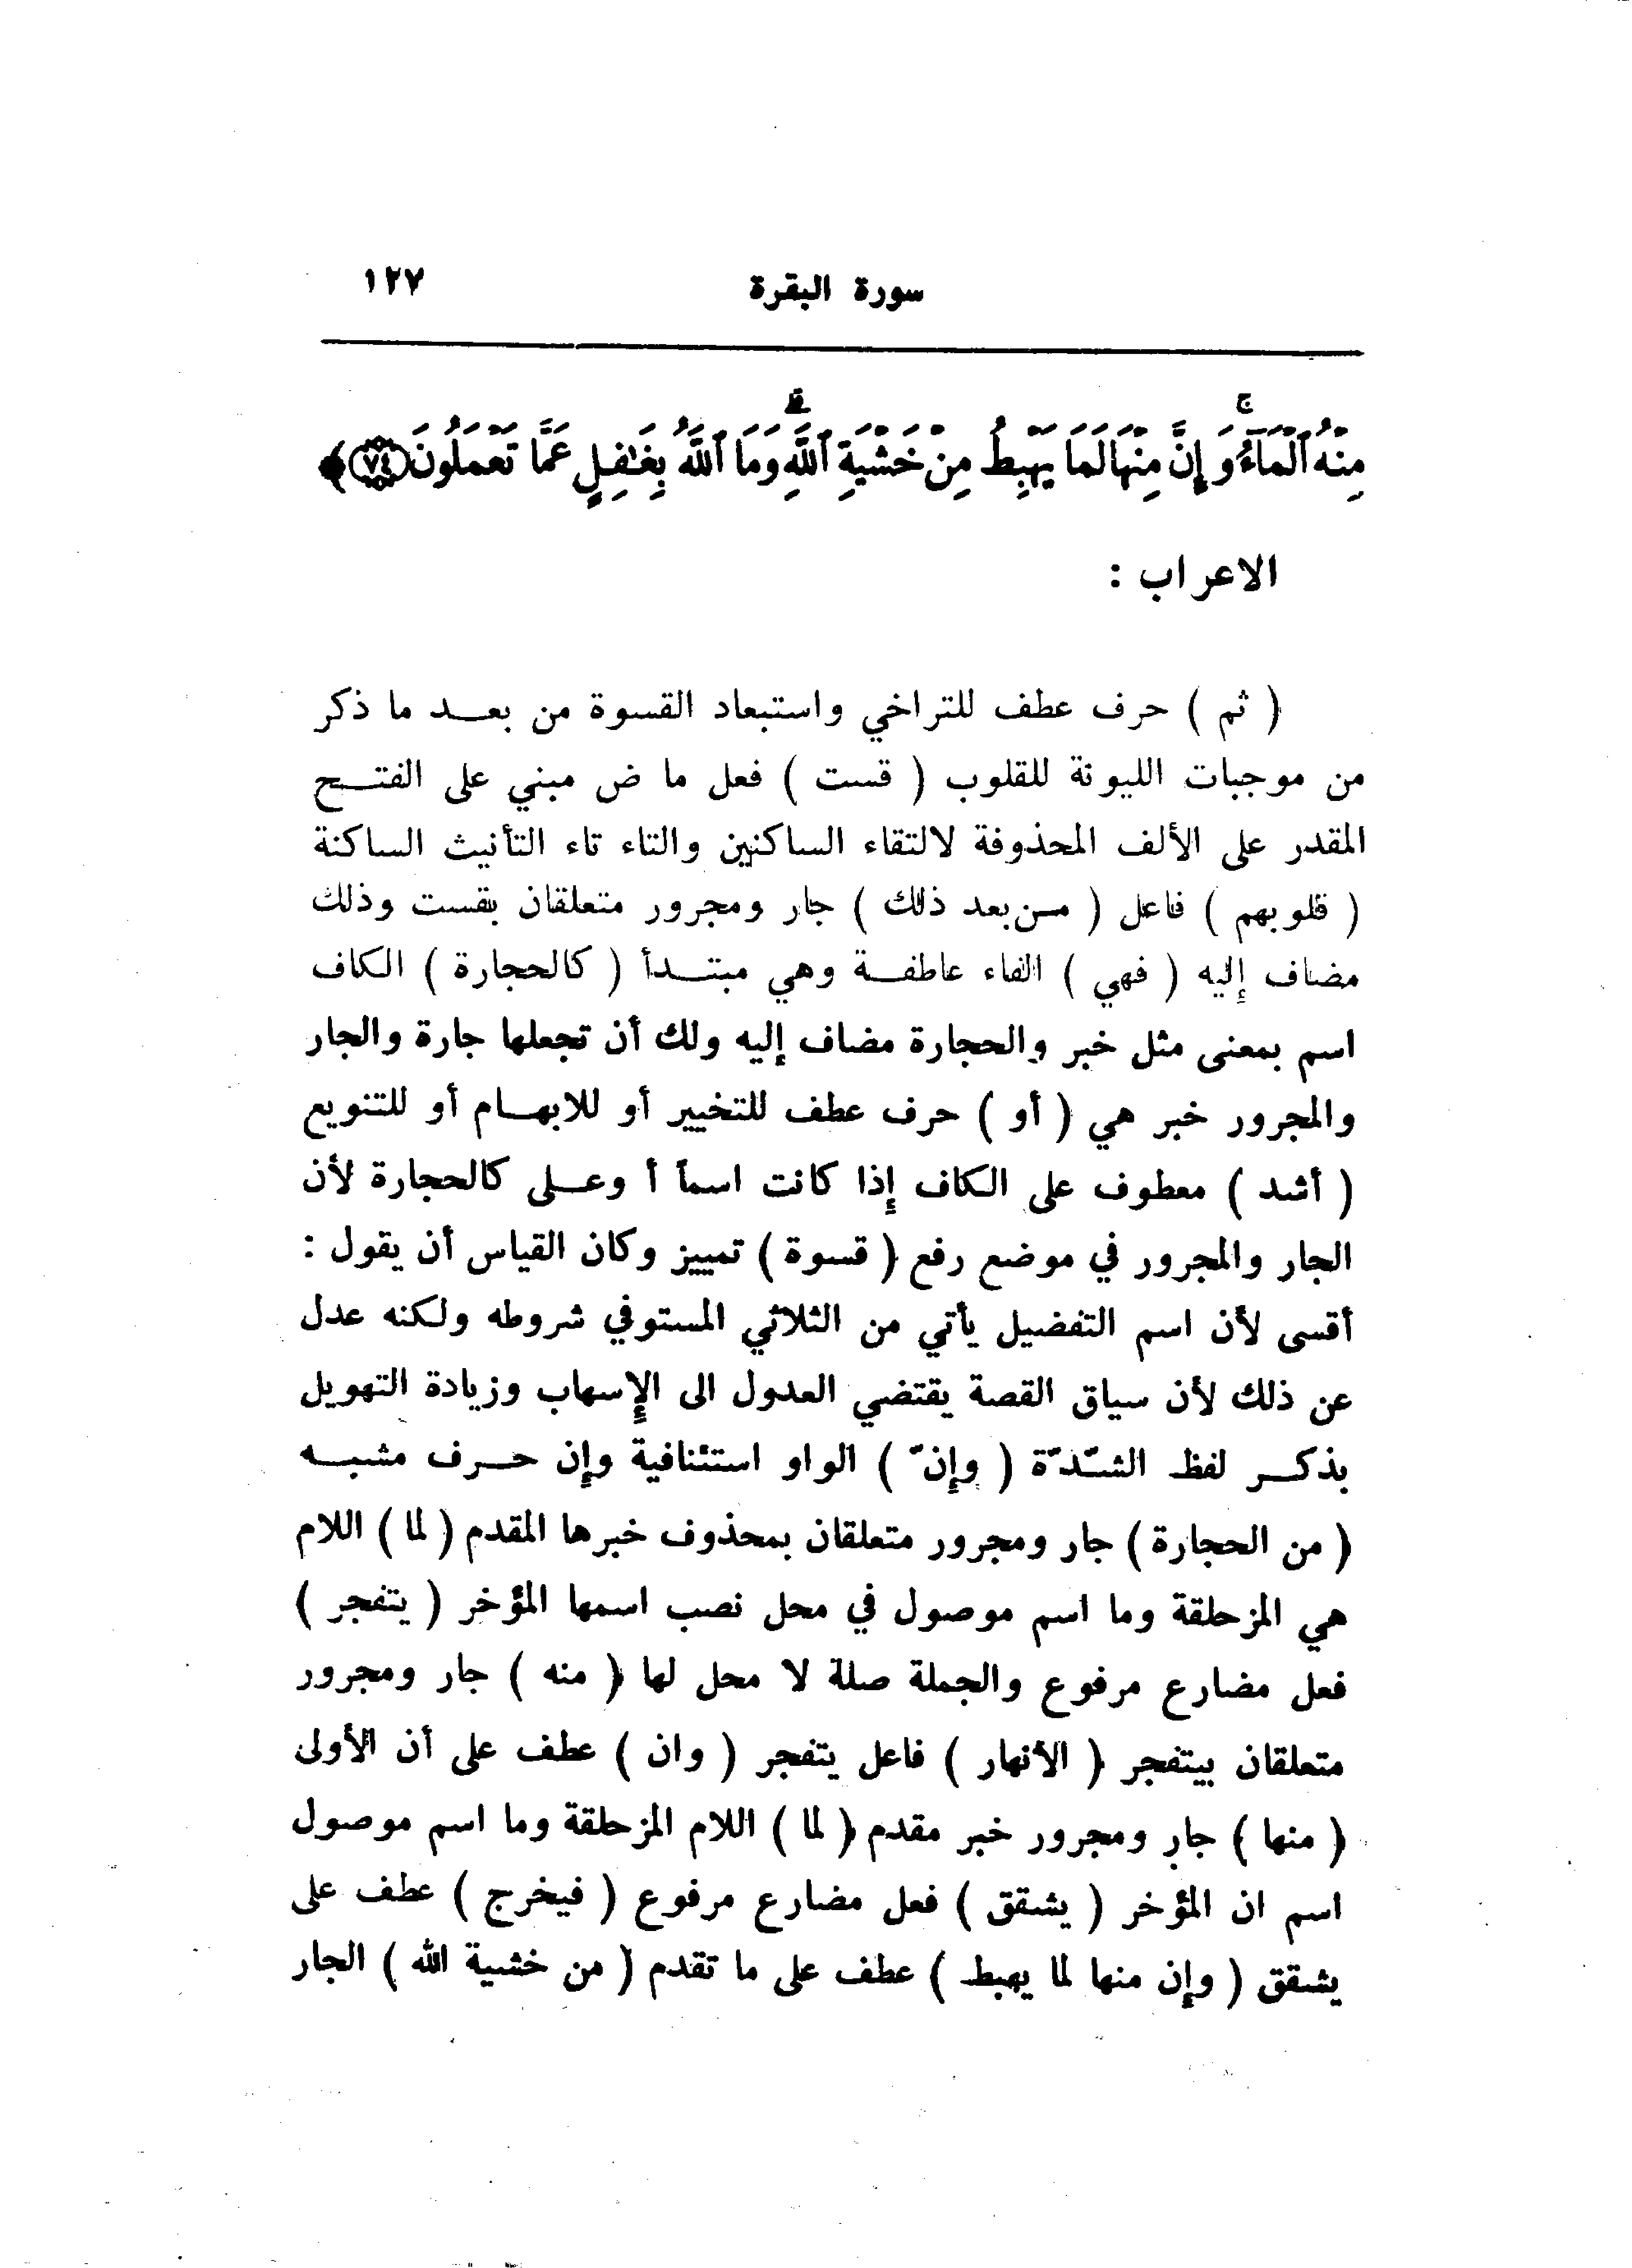 سورة البقرة ١٢٧
مِنْهُ ٱلْمَآءُ ۚ وَإِنَّ مِنْهَا لَمَا يَهْبِطُ مِنْ خَشْيَةِ ٱللَّهِ ۗ وَمَا ٱللَّهُ بِغَٰفِلٍ عَمَّا تَعْمَلُونَ ٧٤ ﴾
الاعراب :
( ثم ) حرف عطف للتراخي واستبعاد القسوة من بعد ما ذكر
من موجبات الليونة للقلوب ( قست ) فعل ما ض مبني على الفتح
المقدر على الألف المحذوفة لالتقاء الساكنين والتاء تاء التأنيث الساكنة
( قلوبهم ) فاعل ( من بعد ذلك ) جار ومجرور متعلقان بقست وذلك
مضاف إليه ( فهي ) الفاء عاطفة وهي مبتدأ ( كالحجارة ) الكاف
اسم بمعنى مثل خبر والحجارة مضاف إليه ولك أن تجعلها جارة والجار
والمجرور خبر هي ( أو ) حرف عطف للتخيير أو للابهام أو للتنويع
( أشد ) معطوف على الكاف إذا كانت اسماً أ وعلى كالحجارة لأن
الجار والمجرور في موضع رفع ( قسوة ) تمييز وكان القياس أن يقول :
أقسى لأن اسم التفضيل يأتي من الثلاثي المستوفي شروطه ولكنه عدل
عن ذلك لأن سياق القصة يقتضي العدول الى الإسهاب وزيادة التهويل
بذكر لفظ الشّدّة ( وإنّ ) الواو استئنافية وإن حرف مشبه
( من الحجارة ) جار ومجرور متعلقان بمحذوف خبرها المقدم ( لما ) اللام
هي المزحلقة وما اسم موصول في محل نصب اسمها المؤخر ( يتفجر )
فعل مضارع مرفوع والجملة صلة لا محل لها ( منه ) جار ومجرور
متعلقان بيتفجر ( الأنهار ) فاعل يتفجر ( وان ) عطف على أن الأولى
( منها ) جار ومجرور خبر مقدم ( لما ) اللام المزحلقة وما اسم موصول
اسم ان المؤخر ( يشقق ) فعل مضارع مرفوع ( فيخرج ) عطف على
يشقق ( وإن منها لما يهبط ) عطف على ما تقدم ( من خشية الله ) الجار